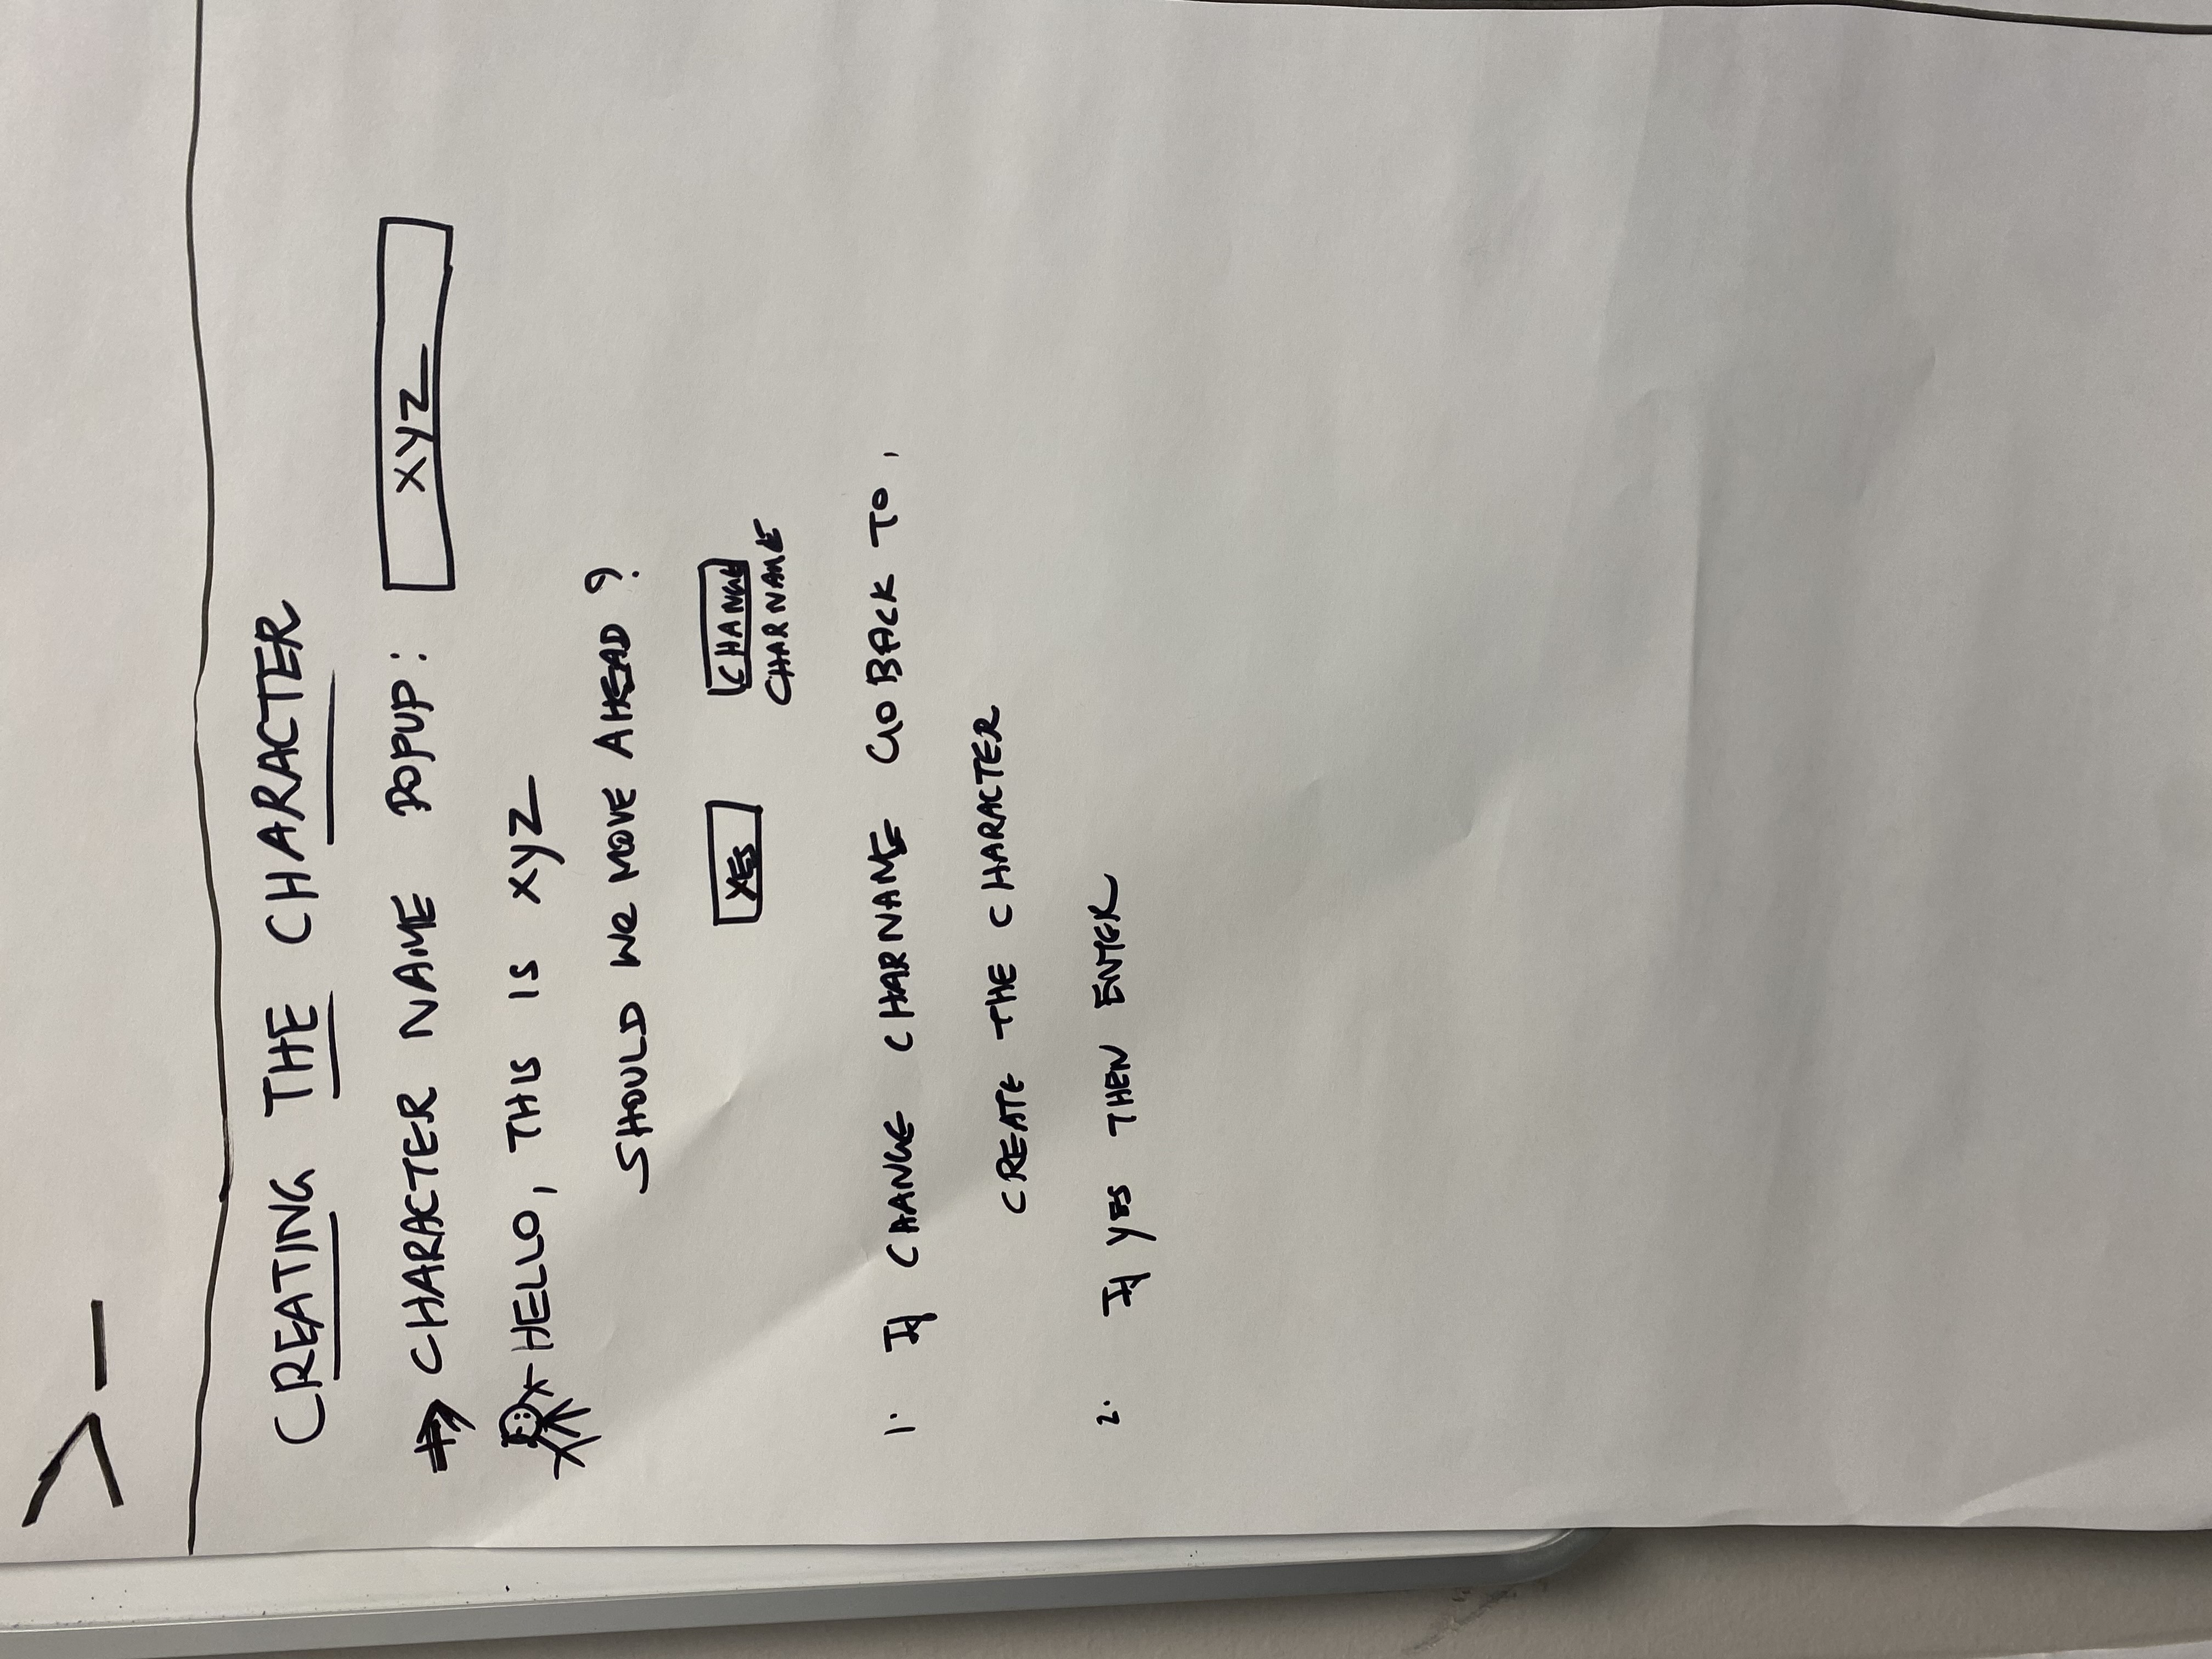 >_
CREATING THE CHARACTER
⇒ CHARACTER NAME POPUP: XYZ
HELLO, THIS IS XYZ
SHOULD WE MOVE AHEAD ?
YES CHANGE
CHARNAME
1. If CHANGE CHARNAME GO BACK TO,
CREATE THE CHARACTER
2. If YES THEN ENTER